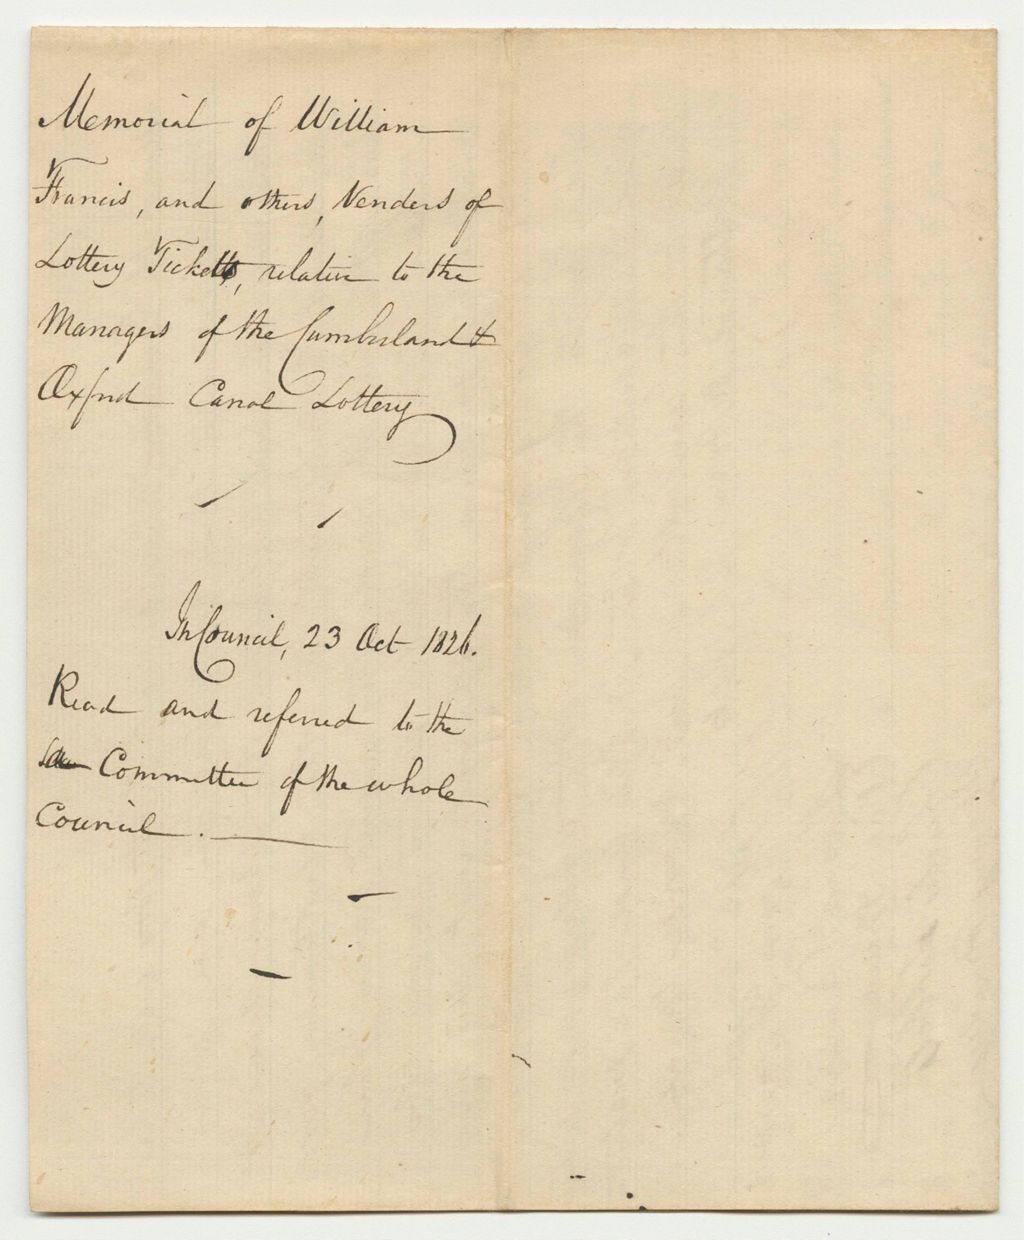 Memorial of William
Francis, and others, Venders of
Lottery Tickets, relative to the
Managers of the Cumberland &
Oxford Canal Lottery
In Council, 23 Oct 1826.
Read and referred to the
Committee of the whole
Council.